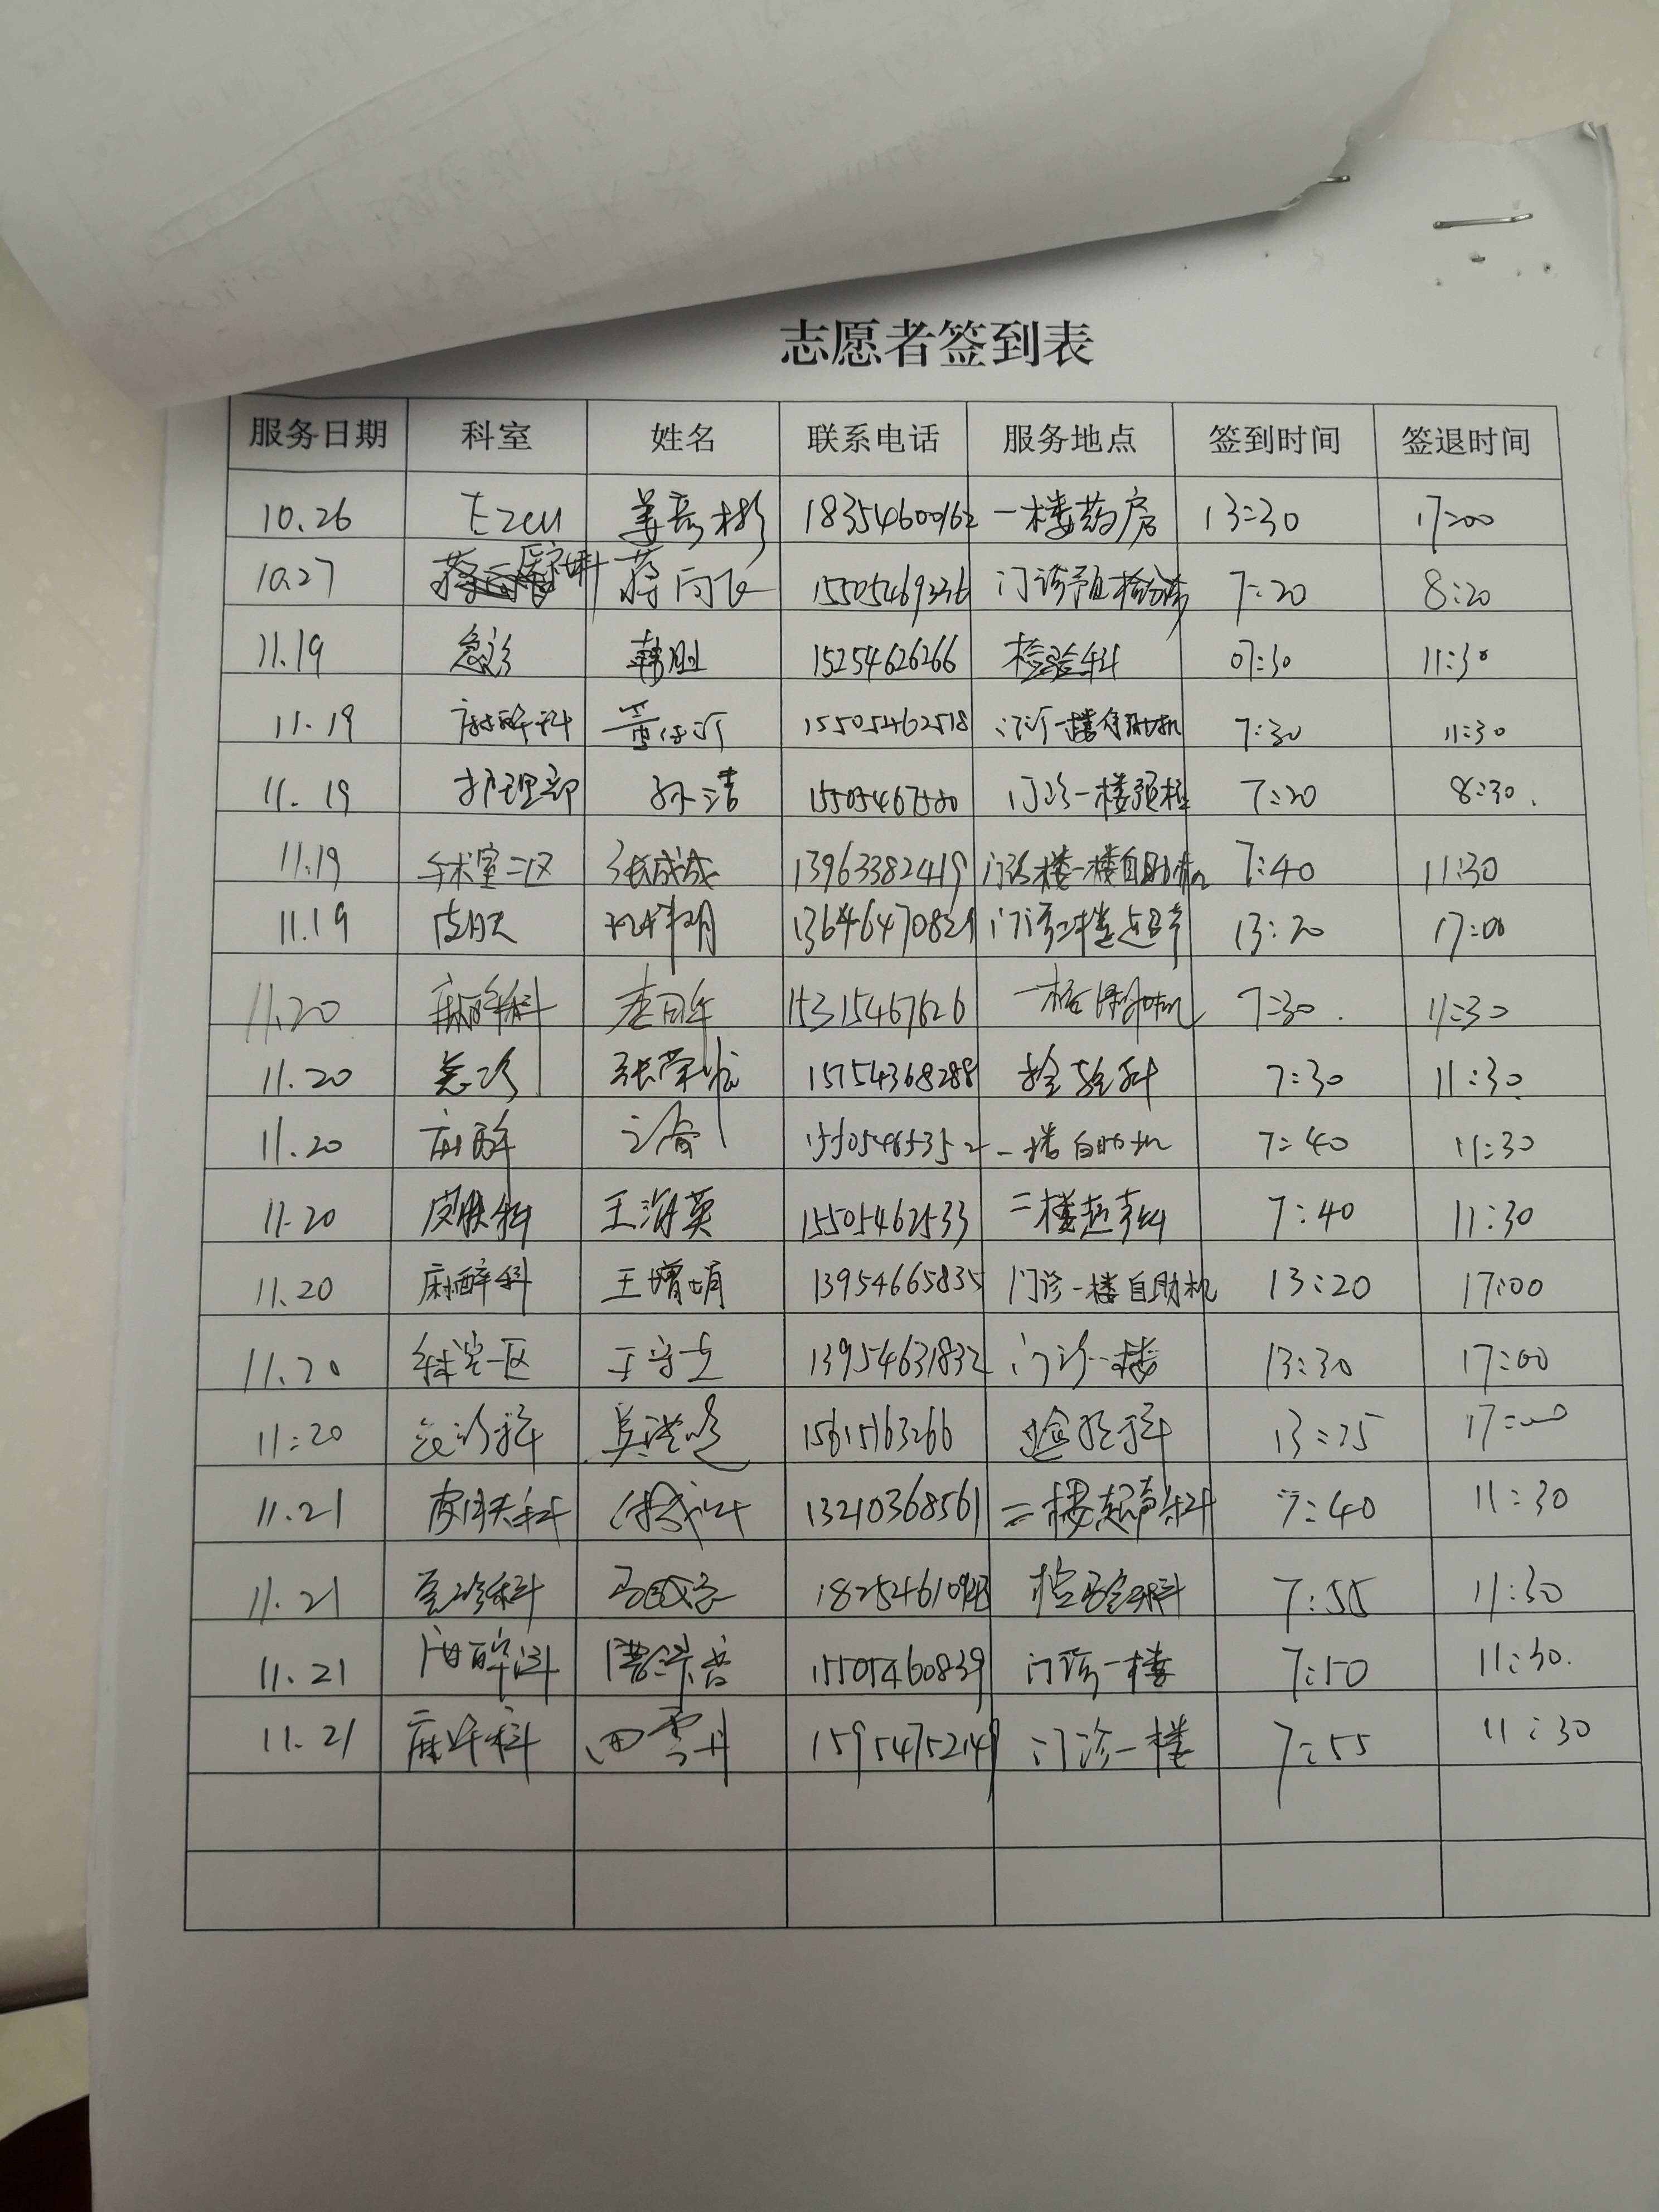 志愿者签到表
服务日期 科室 姓名 联系电话 服务地点 签到时间 签退时间
10.26 姜彦彬 18354600162 一楼药房 13:30 17:00
10.27 蒋向飞 15505469336 门诊预检分诊 7:20 8:20
11.19 急诊 韩胜 15254626266 检验科 07:30 11:30
11.19 麻醉科 15505462518 门诊一楼自助机 7:30 11:30
11.19 护理部 孙洁 15505467580 门诊一楼预检 7:20 8:30.
11.19 手术室二区 张成诚 13963382419 门诊楼一楼自助机 7:40 11:30
11.19 皮肤 13646470829 门诊二楼超声 13:20 17:00
11.20 麻醉科 15315467626 7:30. 11:30
11.20 急诊 15754368288 检验科 7:30 11:30
11.20 麻醉 一楼自助机 7:40 11:30
11.20 皮肤科 王海英 15505462533 二楼超声科 7:40 11:30
11.20 麻醉科 王增娟 13954665835 门诊一楼自助机 13:20 17:00
11.20 13954631832 门诊一楼 13:30 17:00
11:20 急诊科 15615163266 检验科 13:25 17:00
11.21 皮肤科 13210368561 二楼超声科 7:40 11:30
11.21 急诊科 检验科 7:55 11:30
11.21 麻醉科 15505460839 门诊一楼 7:50 11:30.
11.21 麻醉科 田雪丹 15954752149 门诊一楼 7:55 11:30